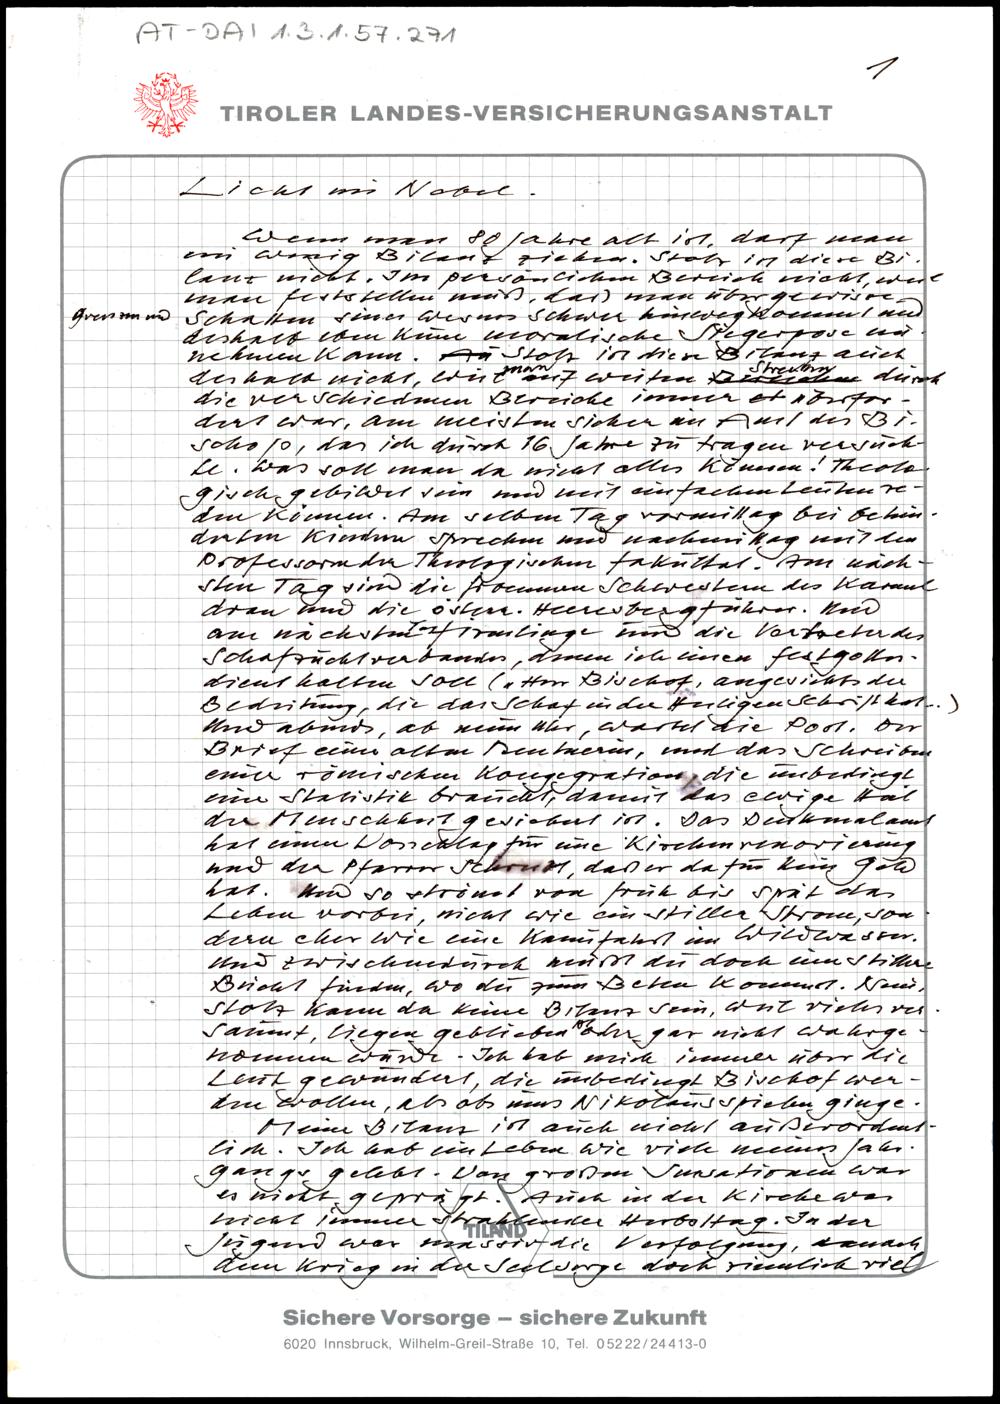 AT-DAI 1.3.1.57.271
1
TIROLER LANDES-VERSICHERUNGSANSTALT
Licht im Nebel.
Wenn man 80 Jahre alt ist, darf man
ein wenig Bilanz ziehen. Stolz ist diese Bi-
lanz nicht. Im persönlichen Bereich nicht, weil
man feststellen muß, daß man über gewisse
Grenzen und Schatten seines Wesens schwer hinwegkommt und
deshalb eben keine moralische Siegerpose ein-
nehmen kann. Stolz ist diese Bilanz auch
deshalb nicht, weil man auf weiten Strecken durch
die verschiedenen Bereiche immer überfor-
dert war, am meisten sicher im Amt des Bi-
schofs, das ich durch 16 Jahre zu tragen versuch-
te. Was soll man da nicht alles können! Theolo-
gisch gebildet sein und mit einfachen Leuten re-
den können. Am selben Tag vormittag bei behin-
derten Kindern sprechen und nachmittag mit den
Professoren der Theologischen Fakultät. Am näch-
sten Tag sind die frommen Schwestern des Karmel
dran und die österr. Heeresbergführer. Und
am nächsten Tag Firmlinge und die Vertreter des
Schafzuchtverbandes, denen ich einen Festgottes-
dienst halten soll („Herr Bischof, angesichts der
Bedeutung, die das Schaf in der Heiligen Schrift hat..)
Und abends, ab neun Uhr, wartet die Post. Der
Brief einer alten Rentnerin, und das Schreiben
einer römischen Kongegration, die unbedingt
eine Statistik braucht, damit das ewige Heil
der Menschheit gesichert ist. Das Denkmalamt
hat einen Vorschlag für eine Kirchenrenovierung
und der Pfarrer schreibt, daß er dafür kein Geld
hat. Und so strömt von früh bis spät das
Leben vorbei, nicht wie ein stiller Strom, son-
dern eher wie eine Kanufahrt im Wildwasser.
Und zwischendurch mußt du doch eine stillere
Bucht finden, wo du zum Beten kommst. Nein,
stolz kann da keine Bilanz sein, weil vieles ver-
säumt, liegen geblieben ist oder gar nicht wahrge-
nommen wurde. Ich hab mich immer über die
Leut gewundert, die unbedingt Bischof wer-
den wollen, als ob ums Nikolausspielen ginge.
Meine Bilanz ist auch nicht außerordent-
lich. Ich hab ein Leben wie viele meines Jahr-
gangs gelebt. Von großen Sensationen war
es nicht geprägt. Auch in der Kirche war
nicht immer strahlender Herbsttag. In der
Jugend war massiv die Verfolgung, danach
dem Krieg in der Seelsorge doch ziemlich viel
TILAND
Sichere Vorsorge – sichere Zukunft
6020 Innsbruck, Wilhelm-Greil-Straße 10, Tel. 05222/24413-0